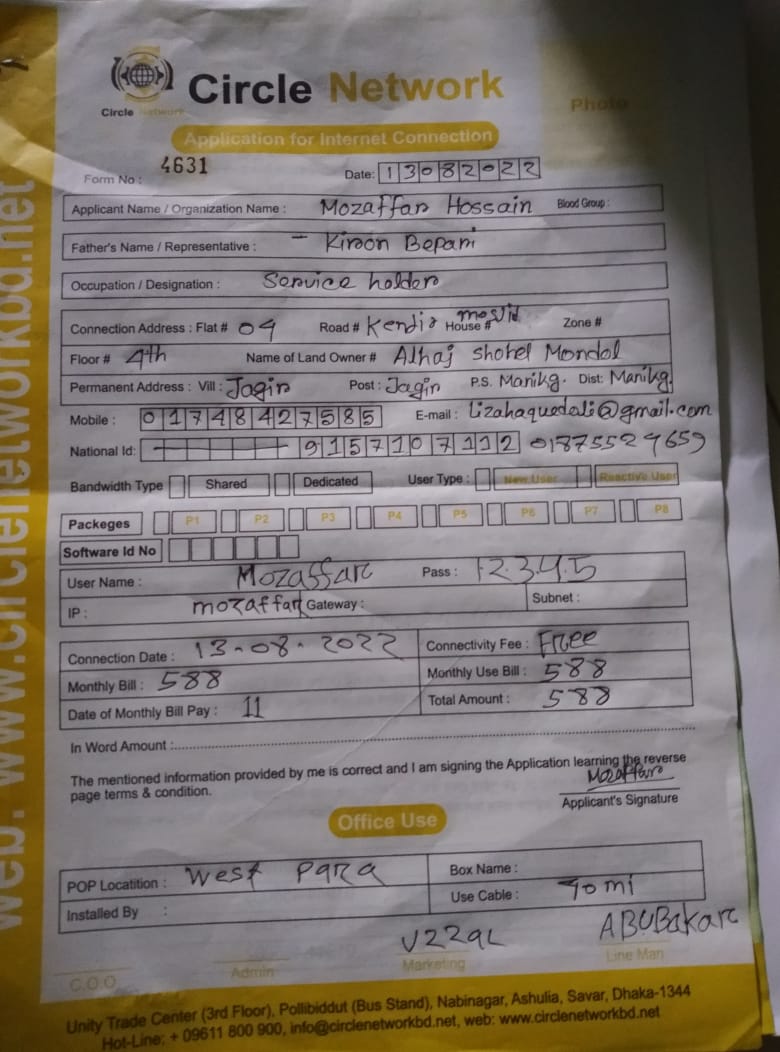 Circle Network
Circle Network
Photo
Application for Internet Connection
Form No : 4631
Date: 13082022
Applicant Name / Organization Name : Mozaffar Hossain Blood Group :
Father's Name / Representative : - Kiron Bepari
Occupation / Designation : Service holder
Connection Address : Flat # 04 Road # Kendio mosjid House # Zone #
Floor # 4th Name of Land Owner # Alhaj Shohel Mondol
Permanent Address : Vill : Jagir Post : Jagir P.S. Manikg. Dist: Manikg.
Mobile : 01748427585 E-mail : lizahaquedali@gmail.com
National Id: 9157107112 01875529659
Bandwidth Type Shared Dedicated User Type : New User Reactive User
Packeges P1 P2 P3 P4 P5 P6 P7 P8
Software Id No
User Name : Mozaffar Pass : 12345
IP : mozaffar Gateway : Subnet :
Connection Date : 13-08-2022 Connectivity Fee : Free
Monthly Bill : 588 Monthly Use Bill : 588
Date of Monthly Bill Pay : 11 Total Amount : 588
In Word Amount :
The mentioned information provided by me is correct and I am signing the Application learning the reverse
page terms & condition.
Mozaffar
Applicant's Signature
Office Use
POP Locatition : West para Box Name :
Installed By : Use Cable : 90mi
ABUBakar
C.O.O Admin Marketing Line Man
Unity Trade Center (3rd Floor), Pollibiddut (Bus Stand), Nabinagar, Ashulia, Savar, Dhaka-1344
Hot-Line: + 09611 800 900, info@circlenetworkbd.net, web: www.circlenetworkbd.net
web: www.circlenetworkbd.net